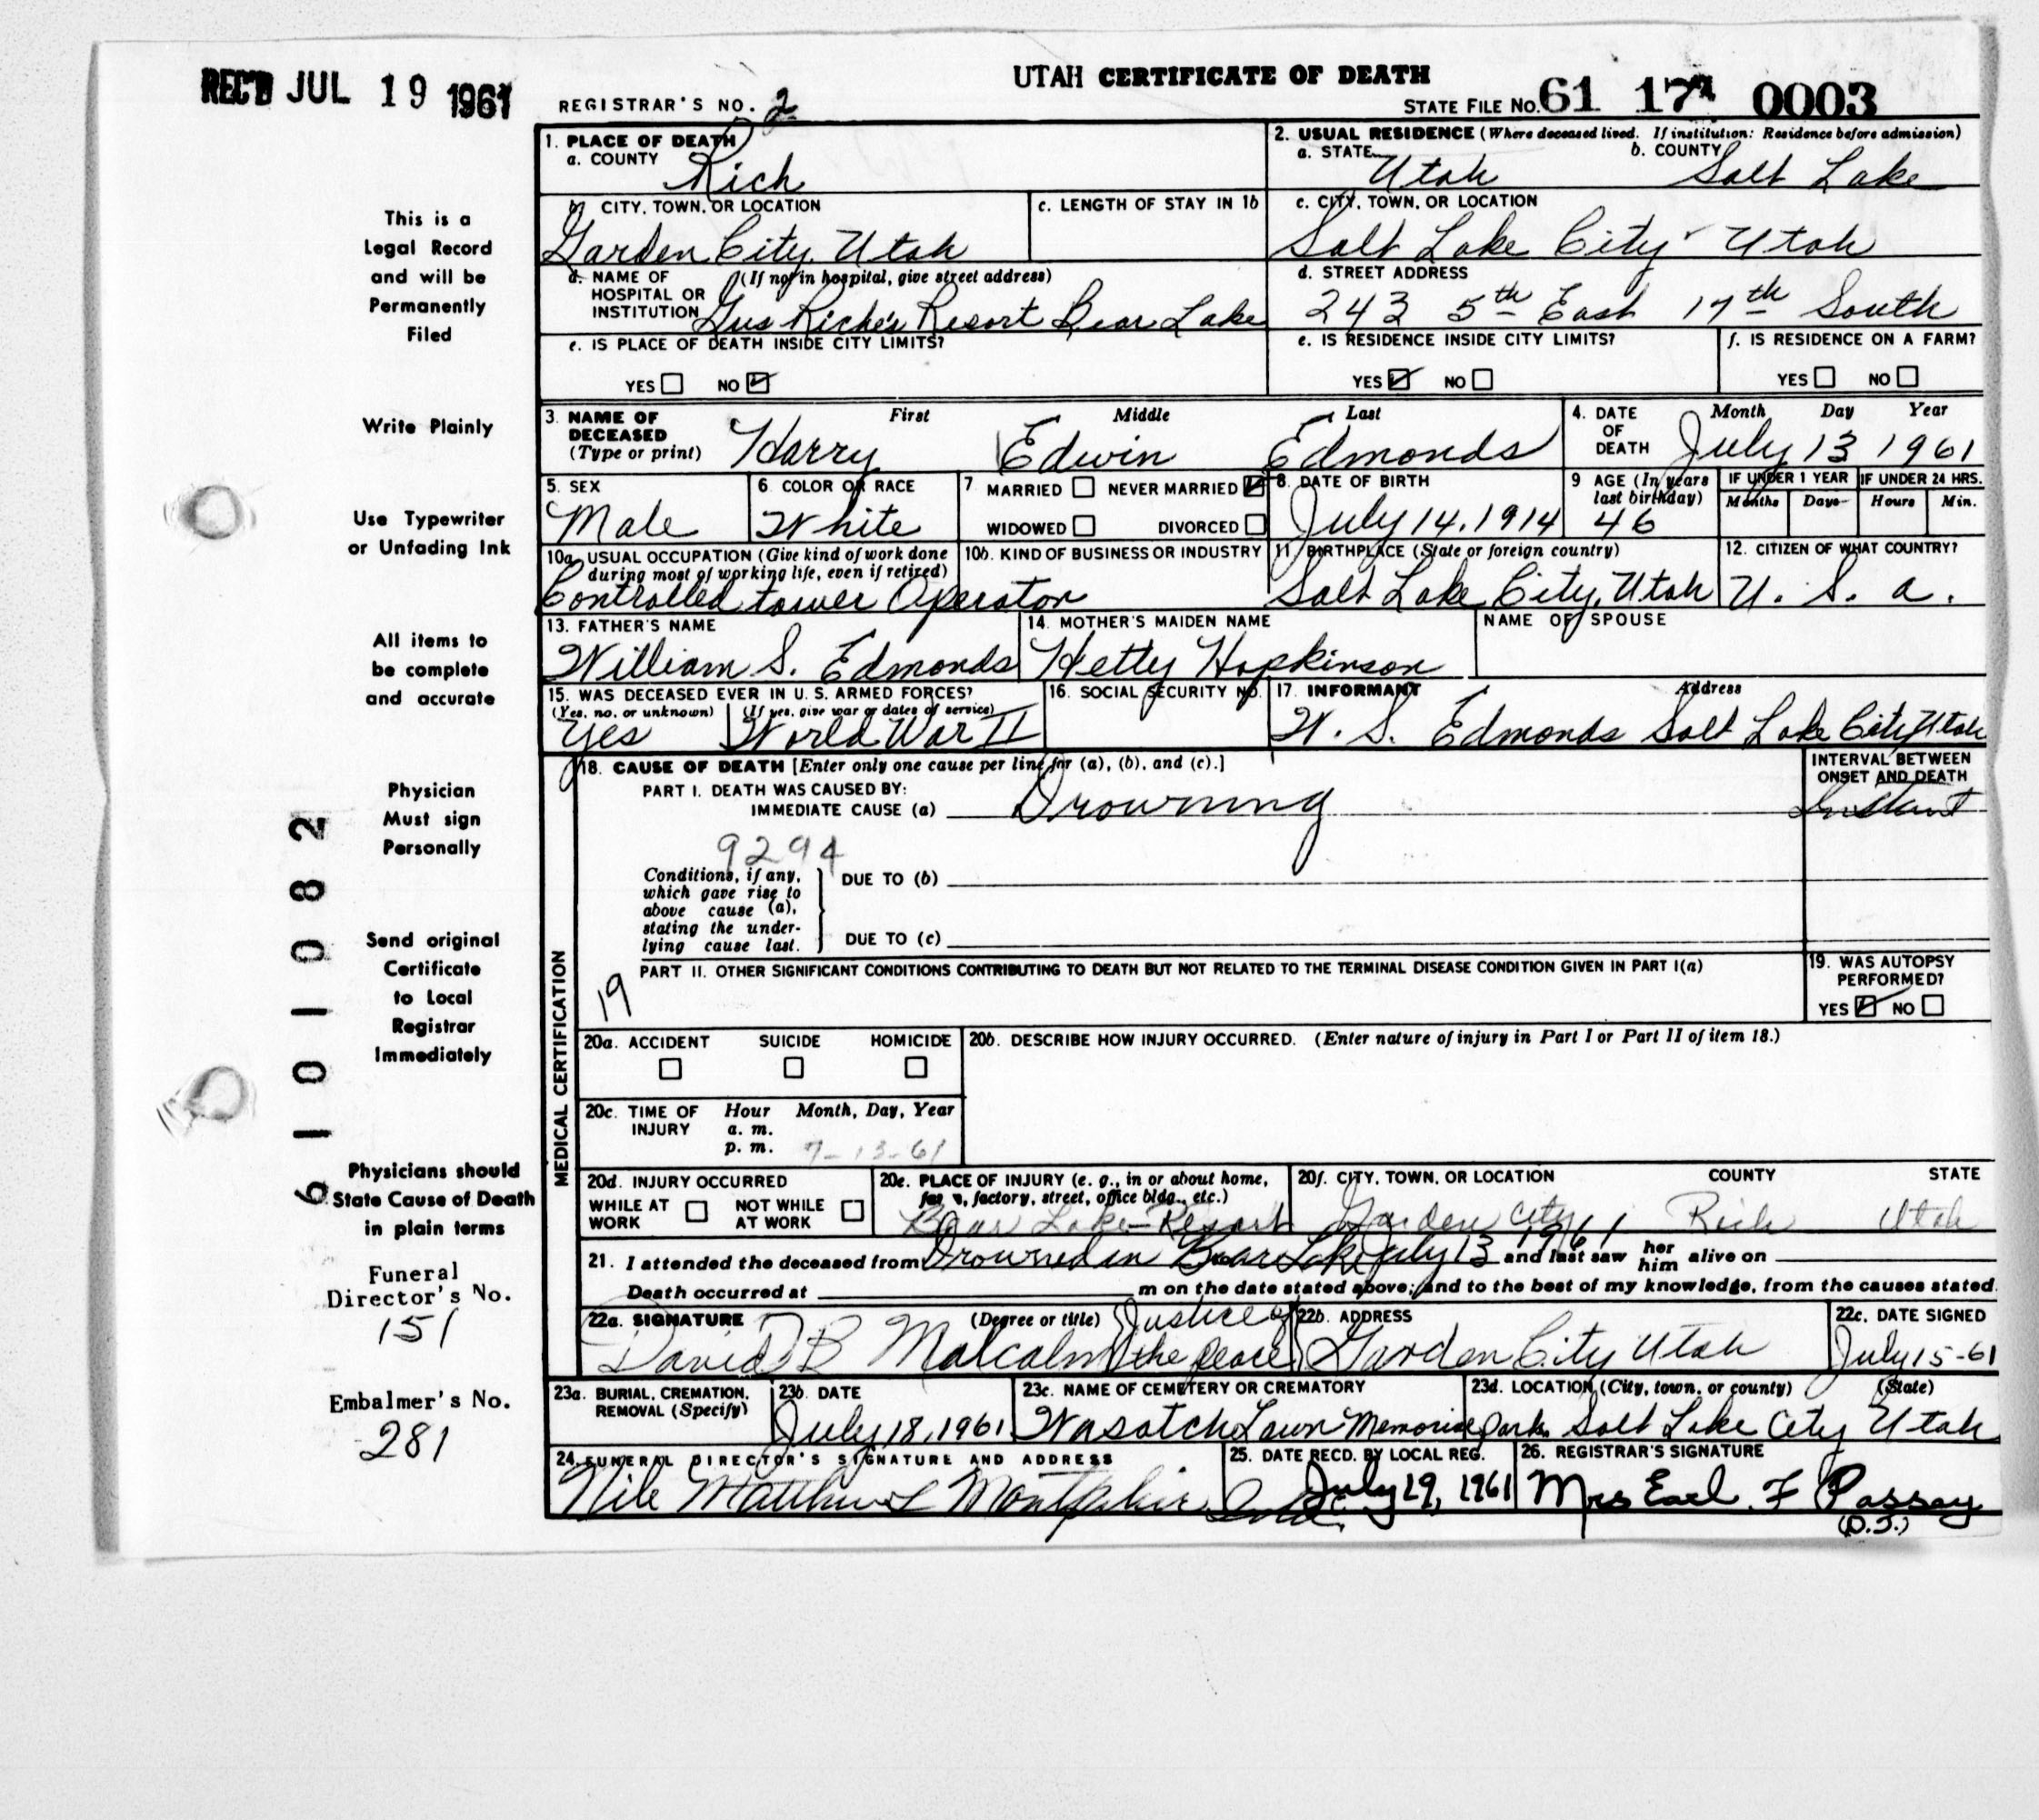 REC'D JUL 19 1961
UTAH CERTIFICATE OF DEATH
REGISTRAR'S NO. 2
STATE FILE No. 61 17 0003
This is a
Legal Record
and will be
Permanently
Filed
Write Plainly
Use Typewriter
or Unfading Ink
All items to
be complete
and accurate
Physician
Must sign
Personally
Send original
Certificate
to Local
Registrar
Immediately
Physicians should
State Cause of Death
in plain terms
Funeral
Director's No.
151
Embalmer's No.
281
6101082
1. PLACE OF DEATH
a. COUNTY
Rich
2. USUAL RESIDENCE (Where deceased lived. If institution: Residence before admission)
a. STATE
Utah
b. COUNTY
Salt Lake
b. CITY, TOWN, OR LOCATION
Garden City, Utah
c. LENGTH OF STAY IN 1b
c. CITY, TOWN, OR LOCATION
Salt Lake City Utah
d. NAME OF (If not in hospital, give street address)
HOSPITAL OR
INSTITUTION Gus Riche's Resort Bear Lake
d. STREET ADDRESS
243 5th East 17th South
e. IS PLACE OF DEATH INSIDE CITY LIMITS?
YES NO
e. IS RESIDENCE INSIDE CITY LIMITS?
YES NO
f. IS RESIDENCE ON A FARM?
YES NO
3. NAME OF
DECEASED
(Type or print)
First Middle Last
Harry Edwin Edmonds
4. DATE
OF
DEATH
Month Day Year
July 13 1961
5. SEX
Male
6. COLOR OR RACE
White
7. MARRIED NEVER MARRIED
WIDOWED DIVORCED
8. DATE OF BIRTH
July 14, 1914
9 AGE (In years
last birthday)
46
IF UNDER 1 YEAR
Months Days
IF UNDER 24 HRS.
Hours Min.
10a. USUAL OCCUPATION (Give kind of work done
during most of working life, even if retired)
Controlled tower Operator
10b. KIND OF BUSINESS OR INDUSTRY
11. BIRTHPLACE (State or foreign country)
Salt Lake City, Utah
12. CITIZEN OF WHAT COUNTRY?
U. S. a.
13. FATHER'S NAME
William S. Edmonds
14. MOTHER'S MAIDEN NAME
Hetty Hopkinson
NAME OF SPOUSE
15. WAS DECEASED EVER IN U. S. ARMED FORCES?
(Yes, no, or unknown) (If yes, give war or dates of service)
Yes World War II
16. SOCIAL SECURITY NO.
17. INFORMANT Address
W. S. Edmonds Salt Lake City Utah
MEDICAL CERTIFICATION
18. CAUSE OF DEATH [Enter only one cause per line for (a), (b), and (c).]
INTERVAL BETWEEN
ONSET AND DEATH
PART I. DEATH WAS CAUSED BY:
IMMEDIATE CAUSE (a) Drowning
Instant
9294
Conditions, if any,
which gave rise to
above cause (a),
stating the under-
lying cause last.
DUE TO (b)
DUE TO (c)
PART II. OTHER SIGNIFICANT CONDITIONS CONTRIBUTING TO DEATH BUT NOT RELATED TO THE TERMINAL DISEASE CONDITION GIVEN IN PART I(a)
19
19. WAS AUTOPSY
PERFORMED?
YES NO
20a. ACCIDENT SUICIDE HOMICIDE
20b. DESCRIBE HOW INJURY OCCURRED. (Enter nature of injury in Part I or Part II of item 18.)
20c. TIME OF
INJURY
Hour Month, Day, Year
a. m.
p. m. 7-13-61
20d. INJURY OCCURRED
WHILE AT
WORK
NOT WHILE
AT WORK
20e. PLACE OF INJURY (e. g., in or about home,
farm, factory, street, office bldg., etc.)
Bear Lake-Resort
20f. CITY, TOWN, OR LOCATION COUNTY STATE
Garden City Rich Utah
21. I attended the deceased from Drowned in Bear Lake July 13 1961 and last saw her him alive on
Death occurred at m on the date stated above; and to the best of my knowledge, from the causes stated.
22a. SIGNATURE (Degree or title)
David B Malcalm Justice of the peace
22b. ADDRESS
Garden City Utah
22c. DATE SIGNED
July 15-61
23a. BURIAL, CREMATION,
REMOVAL (Specify)
23b. DATE
July 18, 1961
23c. NAME OF CEMETERY OR CREMATORY
Wasatch Lawn Memorial Park
23d. LOCATION (City, town, or county) (State)
Salt Lake City Utah
24. FUNERAL DIRECTOR'S SIGNATURE AND ADDRESS
Nile Matthews Montpelier Ida.
25. DATE RECD. BY LOCAL REG.
July 19, 1961
26. REGISTRAR'S SIGNATURE
Mrs Earl F Passey
(D.J.)